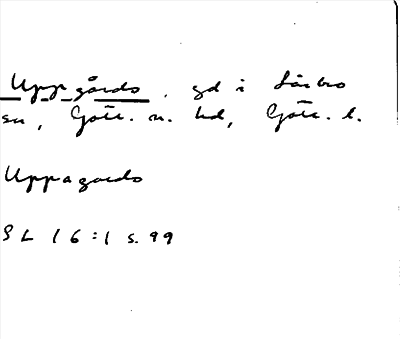 Uppgårds, gd i Lärbro
sn, Gotl. n. hd, Gotl. l.
Uppagards
SL 16:1 s. 99